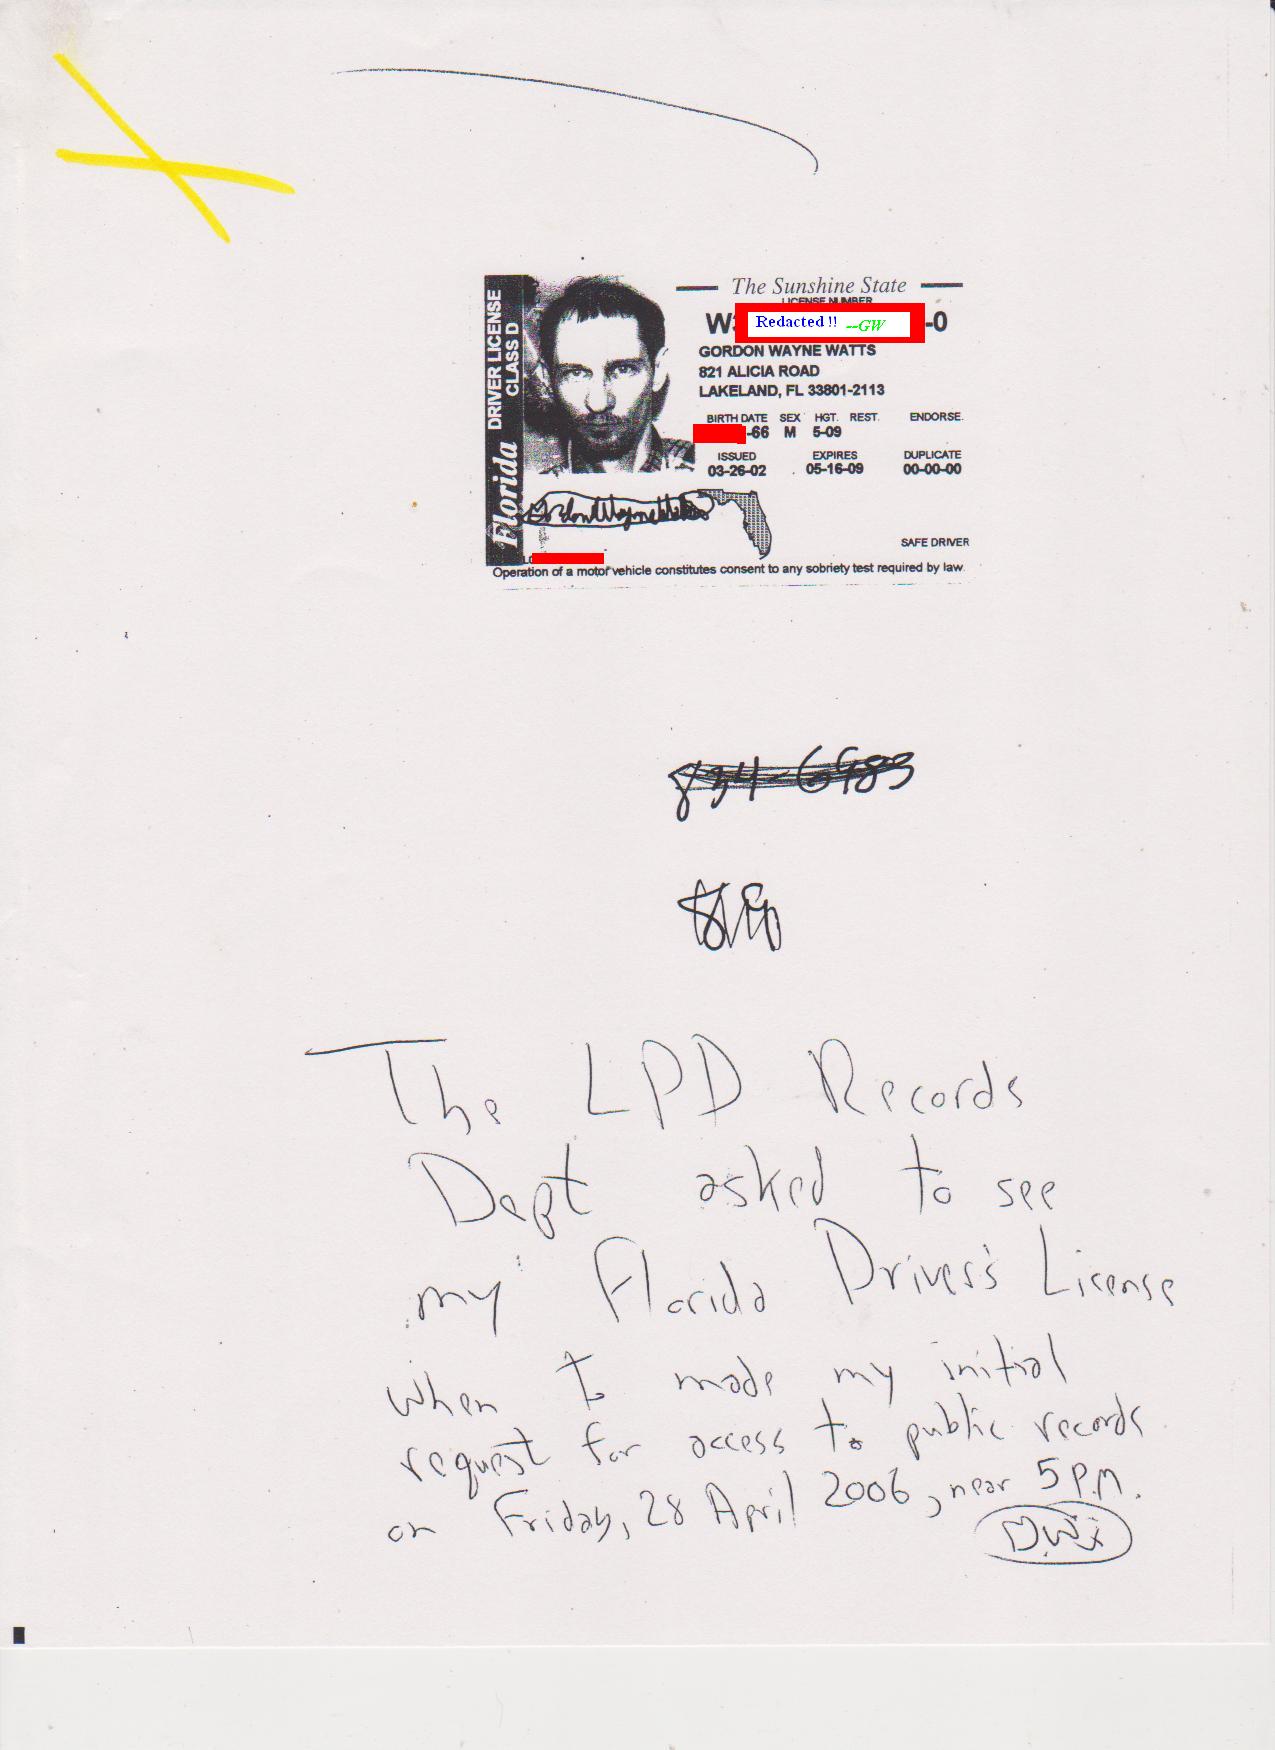 The Sunshine State
LICENSE NUMBER
W3 Redacted !! --GW -0
GORDON WAYNE WATTS
821 ALICIA ROAD
LAKELAND, FL 33801-2113
BIRTH DATE SEX HGT. REST. ENDORSE.
-66 M 5-09
ISSUED EXPIRES DUPLICATE
03-26-02 05-16-09 00-00-00
DRIVER LICENSE
CLASS D
Florida
Gordon Wayne Watts
SAFE DRIVER
Operation of a motor vehicle constitutes consent to any sobriety test required by law.
The LPD Records
Dept asked to see
my Florida Driver's License
when I made my initial
request for access to public records
on Friday, 28 April 2006, near 5 P.M.